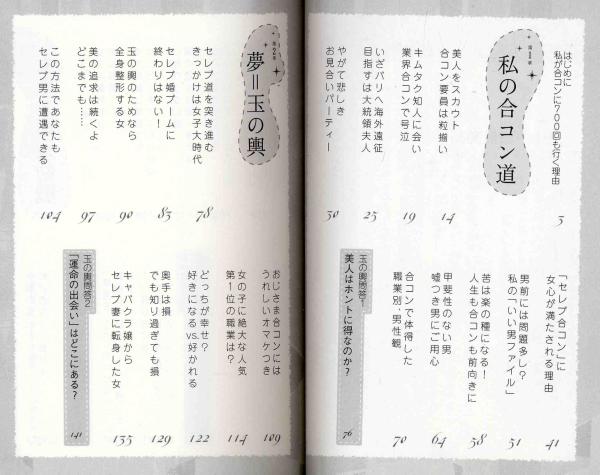 はじめに
私が合コンに700回も行く理由
3
第1章
私の合コン道
美人をスカウト
合コン要員は粒揃い
14
キムタク知人に会い
業界合コンで号泣
19
いざパリへ海外遠征
目指すは大統領夫人
25
やがて悲しき
お見合いパーティー
30
「セレブ合コン」に
女心が満たされる理由
41
男前には問題多し?
私の「いい男ファイル」
51
苦は楽の種になる!
人生も合コンも前向きに
58
甲斐性のない男
嘘つき男にご用心
64
合コンで体得した
職業別、男性観
70
玉の輿問答1
美人はホントに得なのか?
76
第2章
夢=玉の輿
セレブ道を突き進む
きっかけは女子大時代
78
セレブ婚ブームに
終わりはない!
83
玉の輿のためなら
全身整形する女
90
美の追求は続くよ
どこまでも……
97
この方法であなたも
セレブ男に遭遇できる
104
おじさま合コンには
うれしいオマケつき
109
女の子に絶大な人気
第1位の職業は?
114
どっちが幸せ?
好きになるvs.好かれる
122
奥手は損
でも知り過ぎても損
129
キャバクラ嬢から
セレブ妻に転身した女
135
玉の輿問答2
「運命の出会い」はどこにある?
141